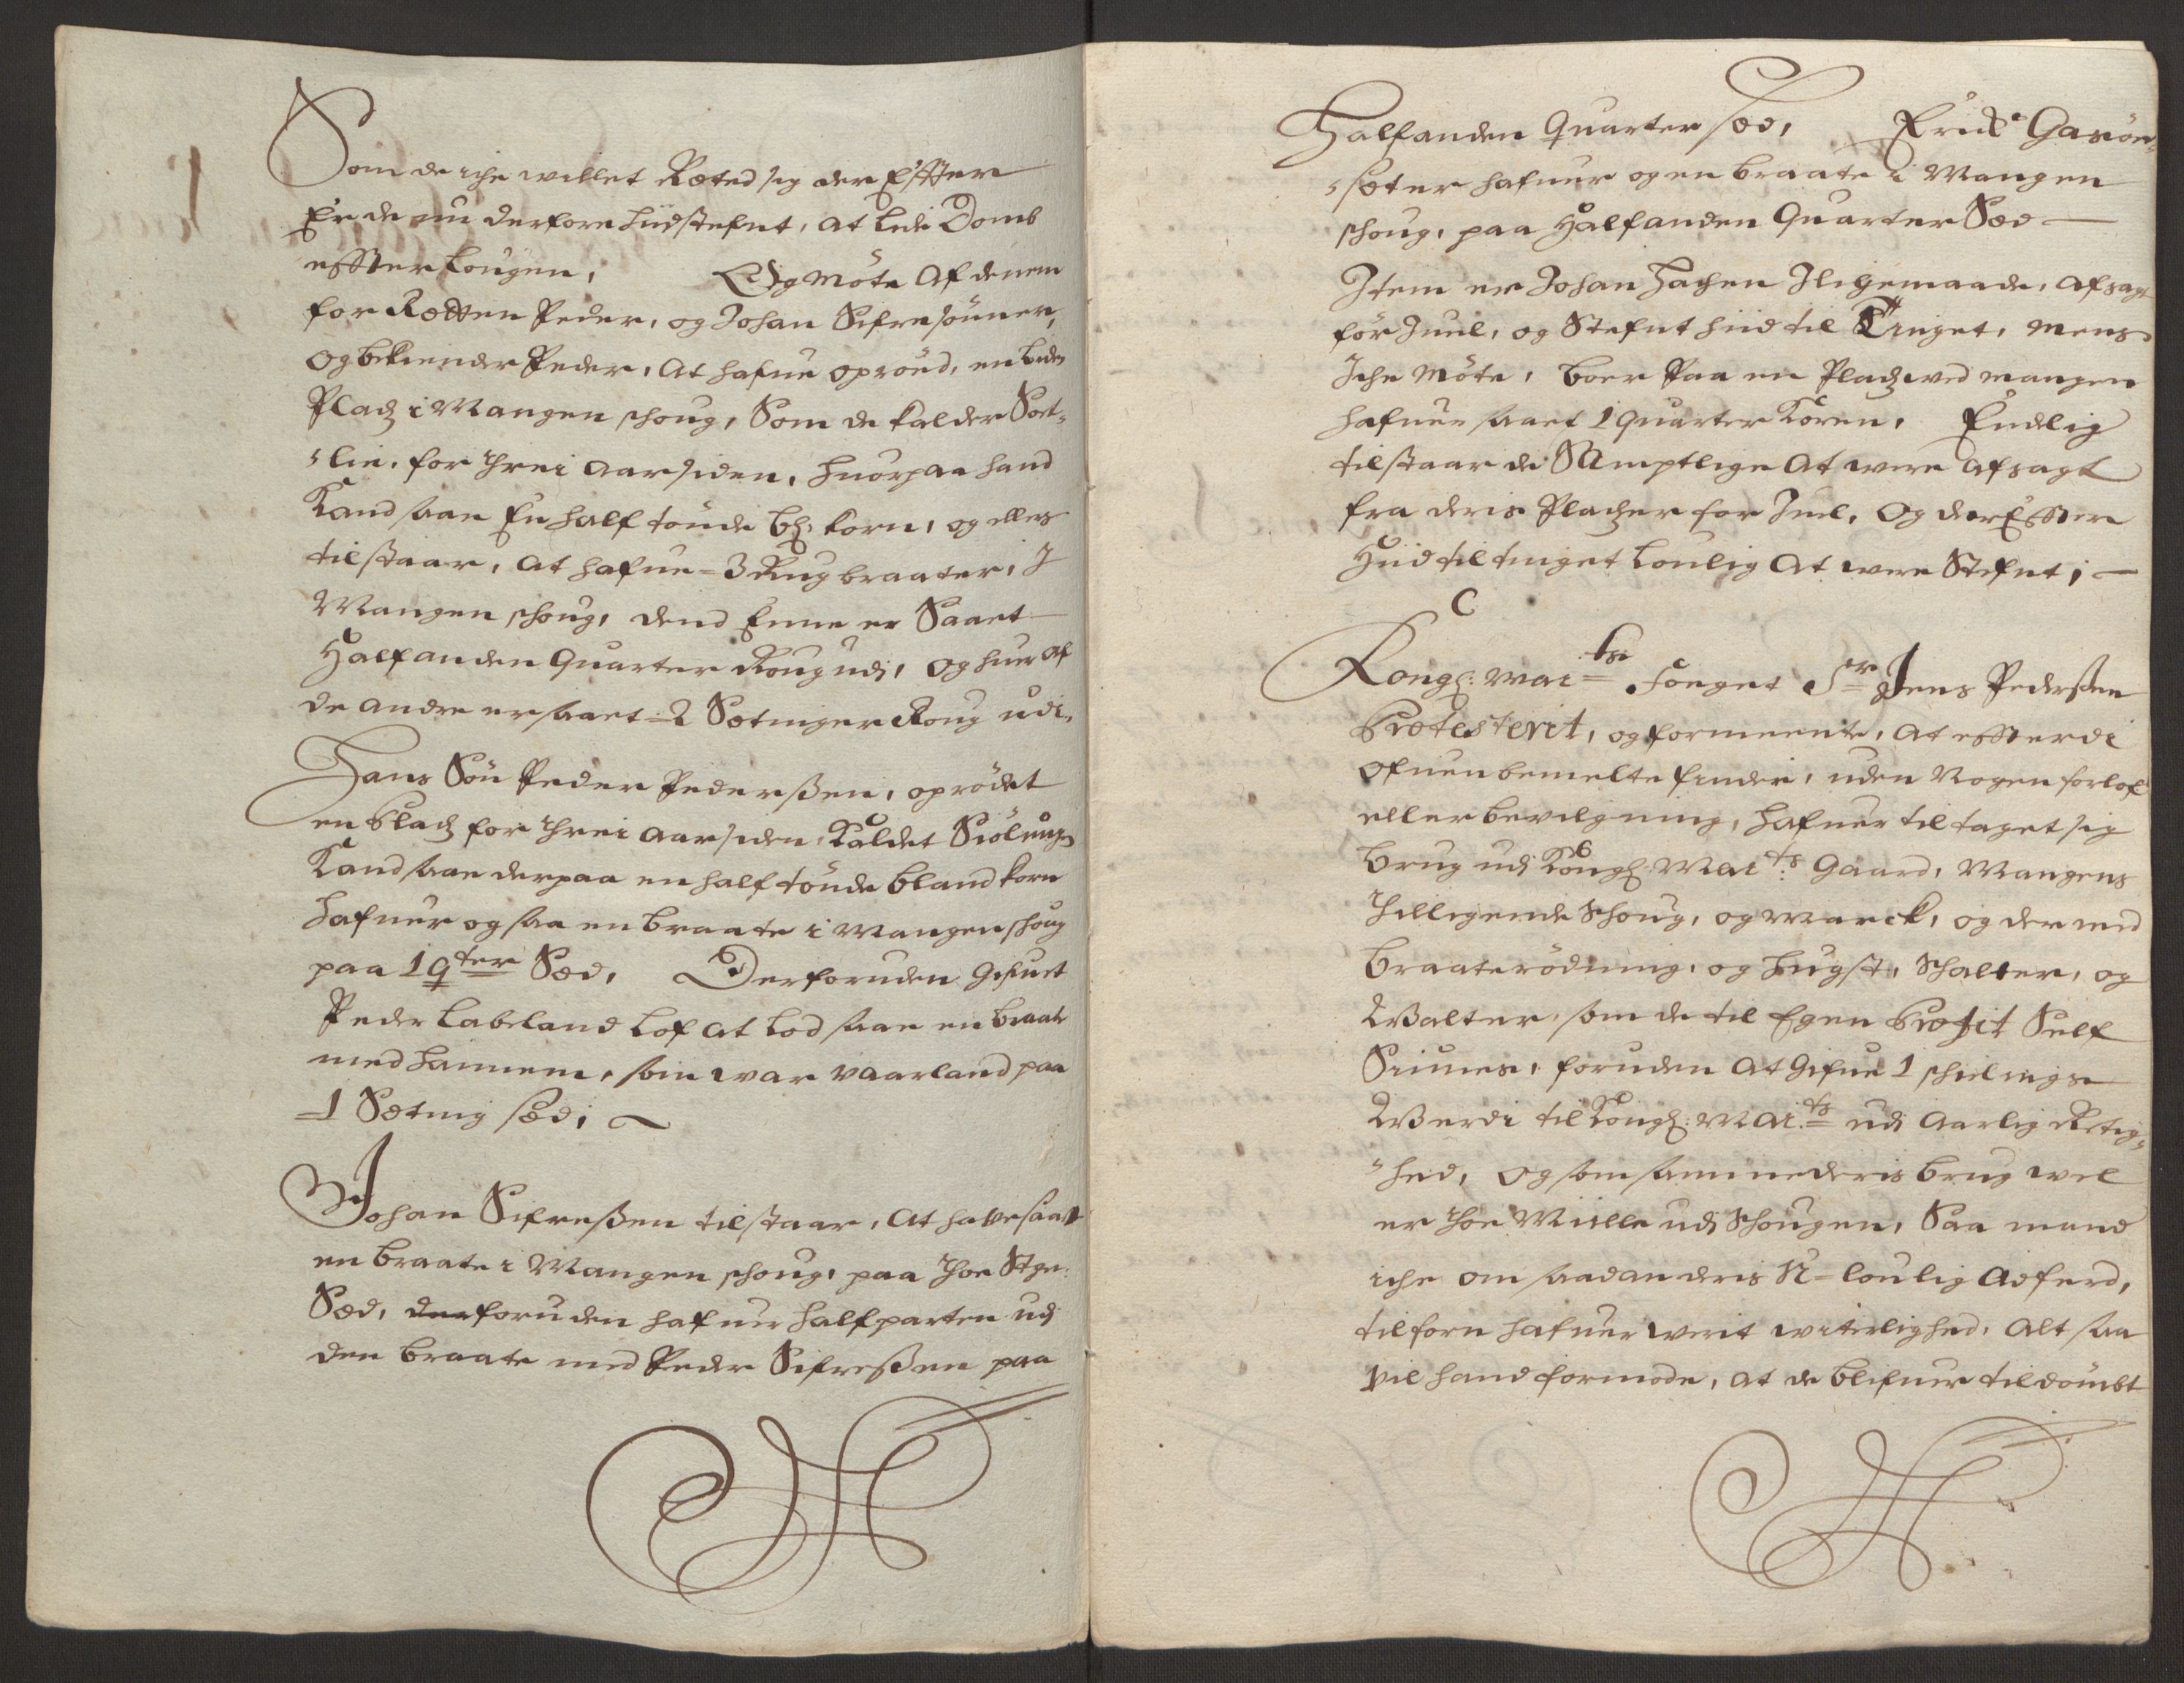 Som de iche willet Rætted sig der Effter
Er de nu derfore hiidstefnt, at lide Domb
effter Lougen, Og møte Af denem
for Rætten Peder, og Johan Sifresønner,
og bekiender Peder, At hafue oprød, en liden
Pladz i Mangen schoug, Som de kalder Sort-
lie, for threi aar siden, huorpaa hand
Kand saae En half tønde bl: korn, og elles
tilstaar, at hafue = 3 Rug braater, I
Mangen schoug, dend Enne er Saaet
Halfanden Quarter Roug udi, og huer af
de andre er saaet = 2 Sætinger Roug udi,
Hans Søn Peder Pederßen, oprødet
en Pladz for threi aar siden, Kaldet
Kand saae derpaa en half tønde bland korn
hafuer og saa en braate i Mangen schoug
paa 1 qter Sæd, Derforuden gifuet
Peder Labeland lof at lod saae en braate
med hannem, som war vaarland paa
1 Sæting sæd,
Johan Sifreßen tilstaar, At have saaet
en braate i Mangen schoug, paa thoe Stgr:
Sæd, derforuden hafuer halfparten udj
den braate med Peder Sifreßen paa
Halfanden Quarter sæd, Erick
sæter hafuer og en braate i Mangen
schoug, paa Halfanden Quarter Sæd
Item er Johan Hachen Iligemaade, afsagt
før Juel, og Stefnt hiid til Tinget, mens
Iche møte, boer Paa en Pladz wed mangen
hafuer saaet 1 quarter Koren, Endelig
tilstaar de Samptlige At were afsagt
fra deris Pladzer for Juel, Og der Effter
Hiid til tinget loulig At were Stefnt;
Kongl: Mai:ts foeget Sr Jens Pederßen
Protesterit, og formeente, at effterdi
ofuenbemelte finder, uden Nogen forlof
eller bevilgning, hafuer tiltaget sig
brug udj Kongl: Mai:ts Gaard, Mangens
tilligende Schoug, og Marck, og der med
braaterødning, og hugst, Schalter, og
Walter, som de til Egen Profit Self
Siunes, foruden At gifue 1 schillings
Werdi til Kongl: Mai:ts udj aarlig Retig-
hed, og som samme deris brug wel
er thoe Miille udj Schougen, Saa mand
iche om saadan deris U-loulig Adferd,
tilforn hafuer werit witterlighed, Alt saa
vil hand formode, at de blifuer tildømbt